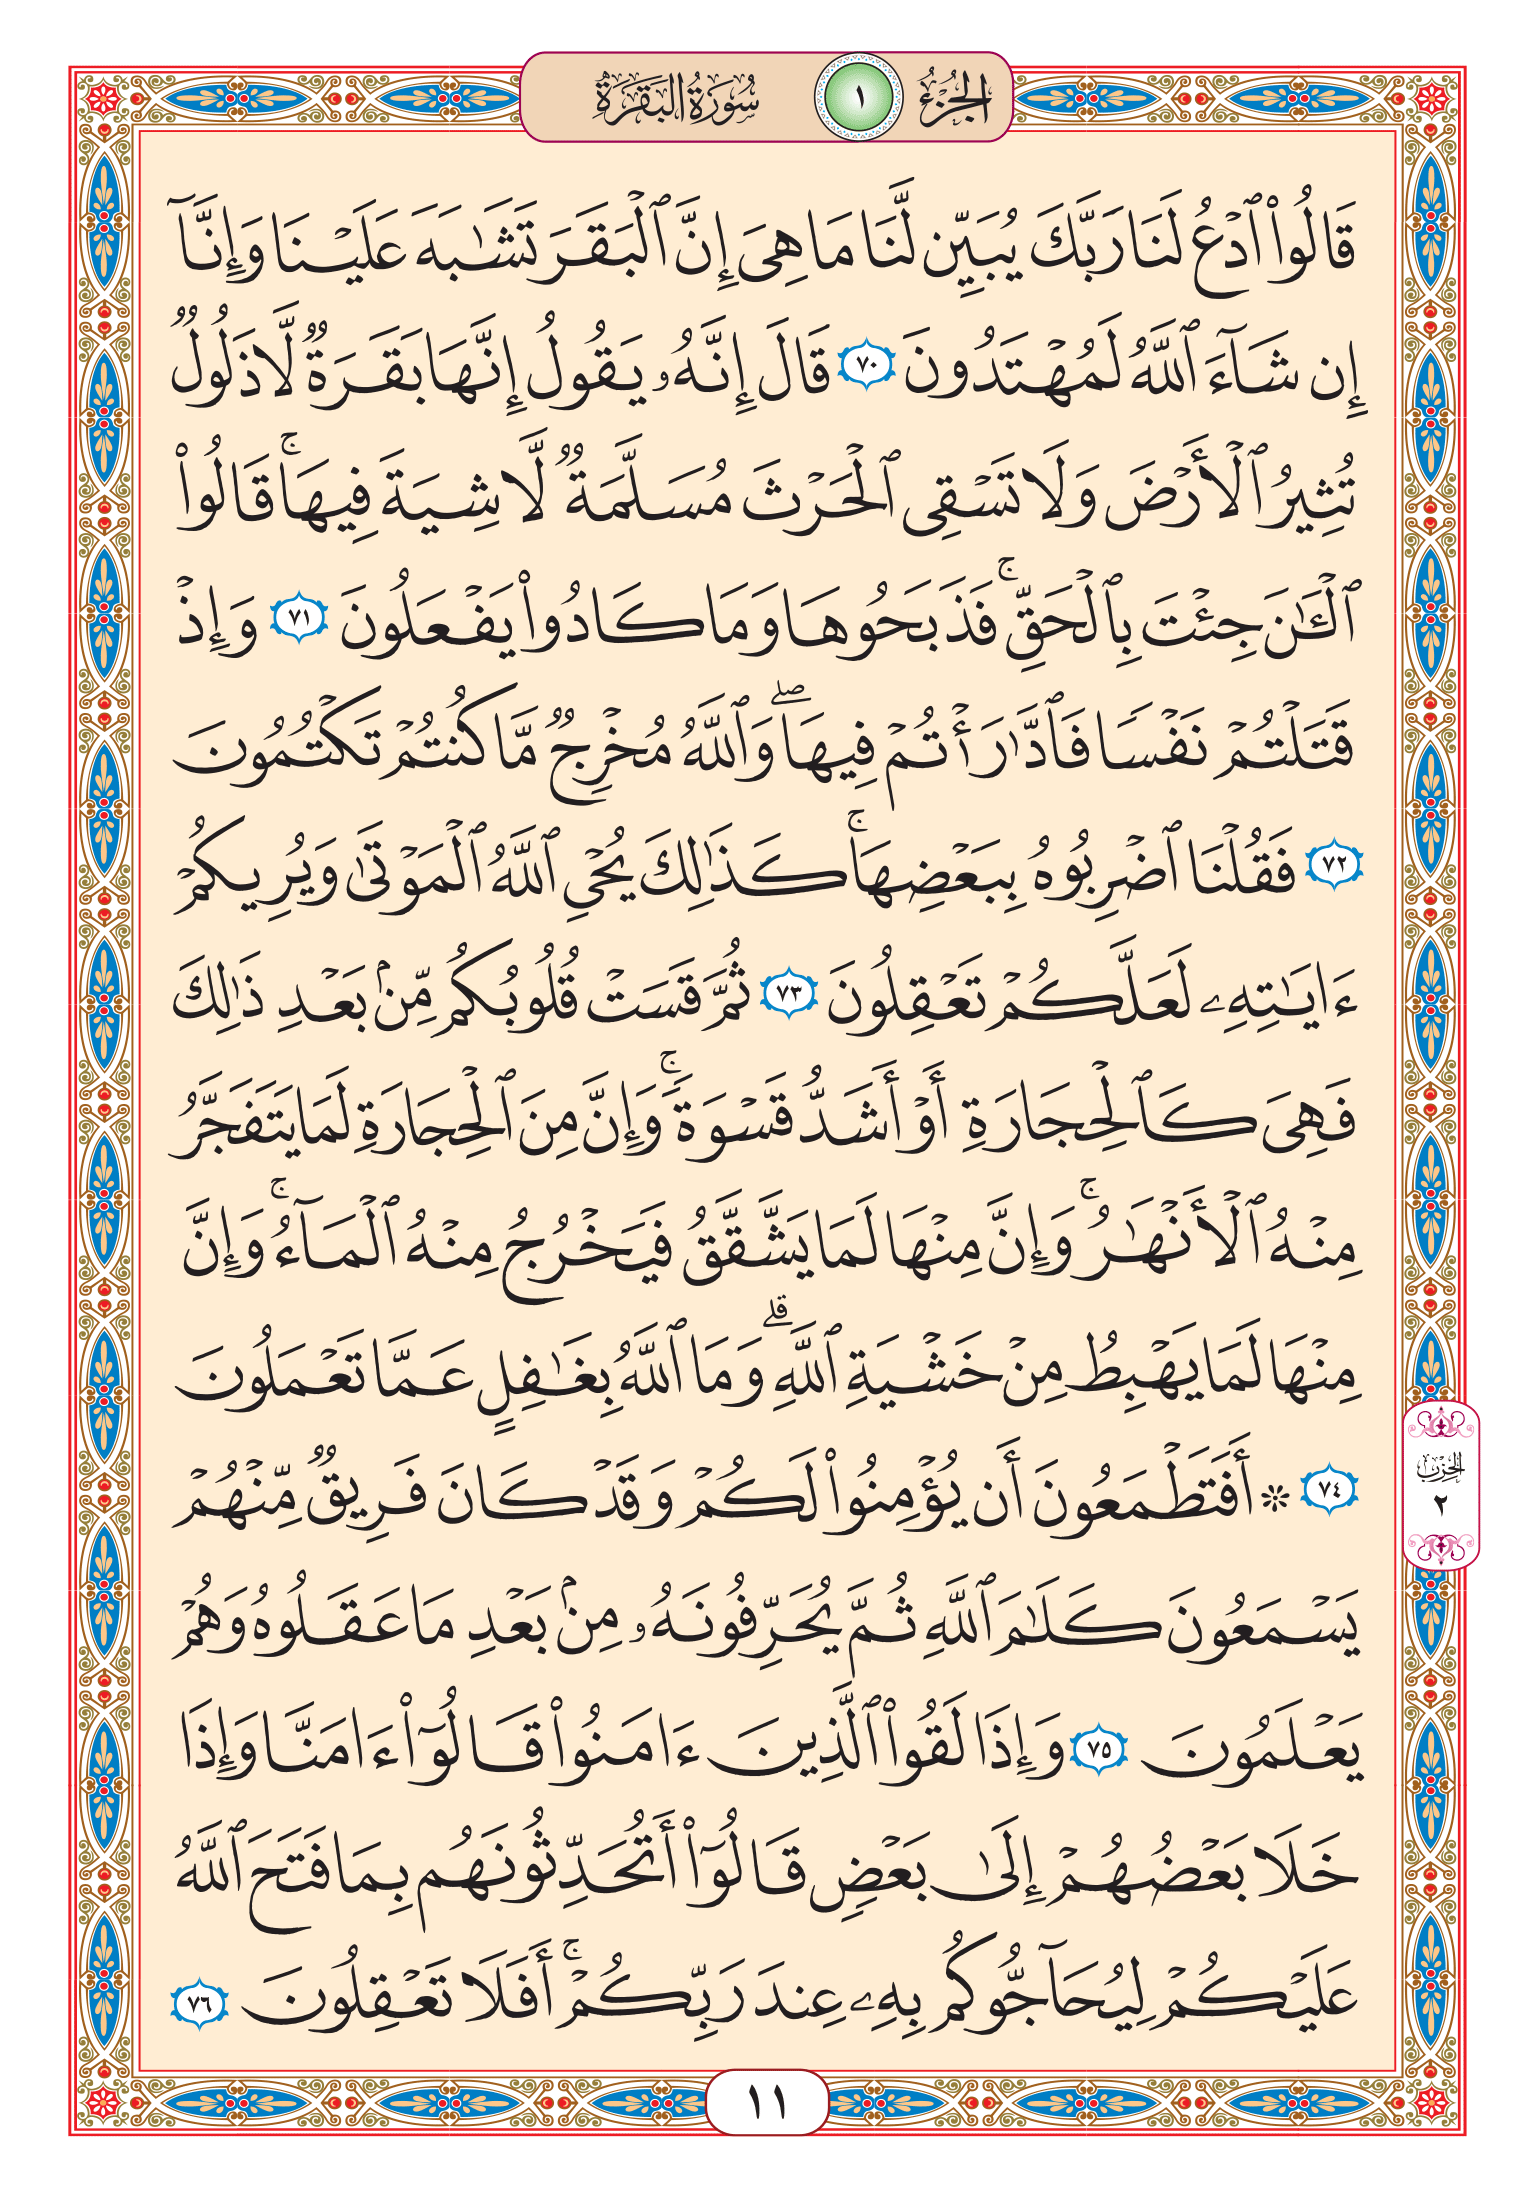 الجزء ١ سورة البقرة
قَالُوا۟ ٱدْعُ لَنَا رَبَّكَ يُبَيِّن لَّنَا مَا هِىَ إِنَّ ٱلْبَقَرَ تَشَٰبَهَ عَلَيْنَا وَإِنَّآ
إِن شَآءَ ٱللَّهُ لَمُهْتَدُونَ ٧٠ قَالَ إِنَّهُۥ يَقُولُ إِنَّهَا بَقَرَةٌ لَّا ذَلُولٌ
تُثِيرُ ٱلْأَرْضَ وَلَا تَسْقِى ٱلْحَرْثَ مُسَلَّمَةٌ لَّا شِيَةَ فِيهَا ۚ قَالُوا۟
ٱلْـَٰٔنَ جِئْتَ بِٱلْحَقِّ ۚ فَذَبَحُوهَا وَمَا كَادُوا۟ يَفْعَلُونَ ٧١ وَإِذْ
قَتَلْتُمْ نَفْسًا فَٱدَّٰرَْٰٔتُمْ فِيهَا ۖ وَٱللَّهُ مُخْرِجٌ مَّا كُنتُمْ تَكْتُمُونَ
٧٢ فَقُلْنَا ٱضْرِبُوهُ بِبَعْضِهَا ۚ كَذَٰلِكَ يُحْىِ ٱللَّهُ ٱلْمَوْتَىٰ وَيُرِيكُمْ
ءَايَٰتِهِۦ لَعَلَّكُمْ تَعْقِلُونَ ٧٣ ثُمَّ قَسَتْ قُلُوبُكُم مِّنۢ بَعْدِ ذَٰلِكَ
فَهِىَ كَٱلْحِجَارَةِ أَوْ أَشَدُّ قَسْوَةً ۚ وَإِنَّ مِنَ ٱلْحِجَارَةِ لَمَا يَتَفَجَّرُ
مِنْهُ ٱلْأَنْهَٰرُ ۚ وَإِنَّ مِنْهَا لَمَا يَشَّقَّقُ فَيَخْرُجُ مِنْهُ ٱلْمَآءُ ۚ وَإِنَّ
مِنْهَا لَمَا يَهْبِطُ مِنْ خَشْيَةِ ٱللَّهِ ۗ وَمَا ٱللَّهُ بِغَٰفِلٍ عَمَّا تَعْمَلُونَ
٧٤ ۞ أَفَتَطْمَعُونَ أَن يُؤْمِنُوا۟ لَكُمْ وَقَدْ كَانَ فَرِيقٌ مِّنْهُمْ
يَسْمَعُونَ كَلَٰمَ ٱللَّهِ ثُمَّ يُحَرِّفُونَهُۥ مِنۢ بَعْدِ مَا عَقَلُوهُ وَهُمْ
يَعْلَمُونَ ٧٥ وَإِذَا لَقُوا۟ ٱلَّذِينَ ءَامَنُوا۟ قَالُوٓا۟ ءَامَنَّا وَإِذَا
خَلَا بَعْضُهُمْ إِلَىٰ بَعْضٍ قَالُوٓا۟ أَتُحَدِّثُونَهُم بِمَا فَتَحَ ٱللَّهُ
عَلَيْكُمْ لِيُحَآجُّوكُم بِهِۦ عِندَ رَبِّكُمْ ۚ أَفَلَا تَعْقِلُونَ ٧٦
الحزب
٢
١١